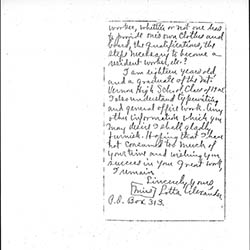 worker, whether or not one has
to provide one's own clothes and
board, the qualifications, the
steps necessary to become a
resident worker, etc.?
I am eighteen years old
and a graduate of the Mt.
Vernon High School Class of
I also understand typewriting
and general office work. Any
other information which you
may desire I shall gladly
furnish. Hoping that I have
not consumed too much of
your time and wishing you
success in your great work,
I remain
Sincerely yours
(Miss) Lotta Alexander
P.O. Box 313.